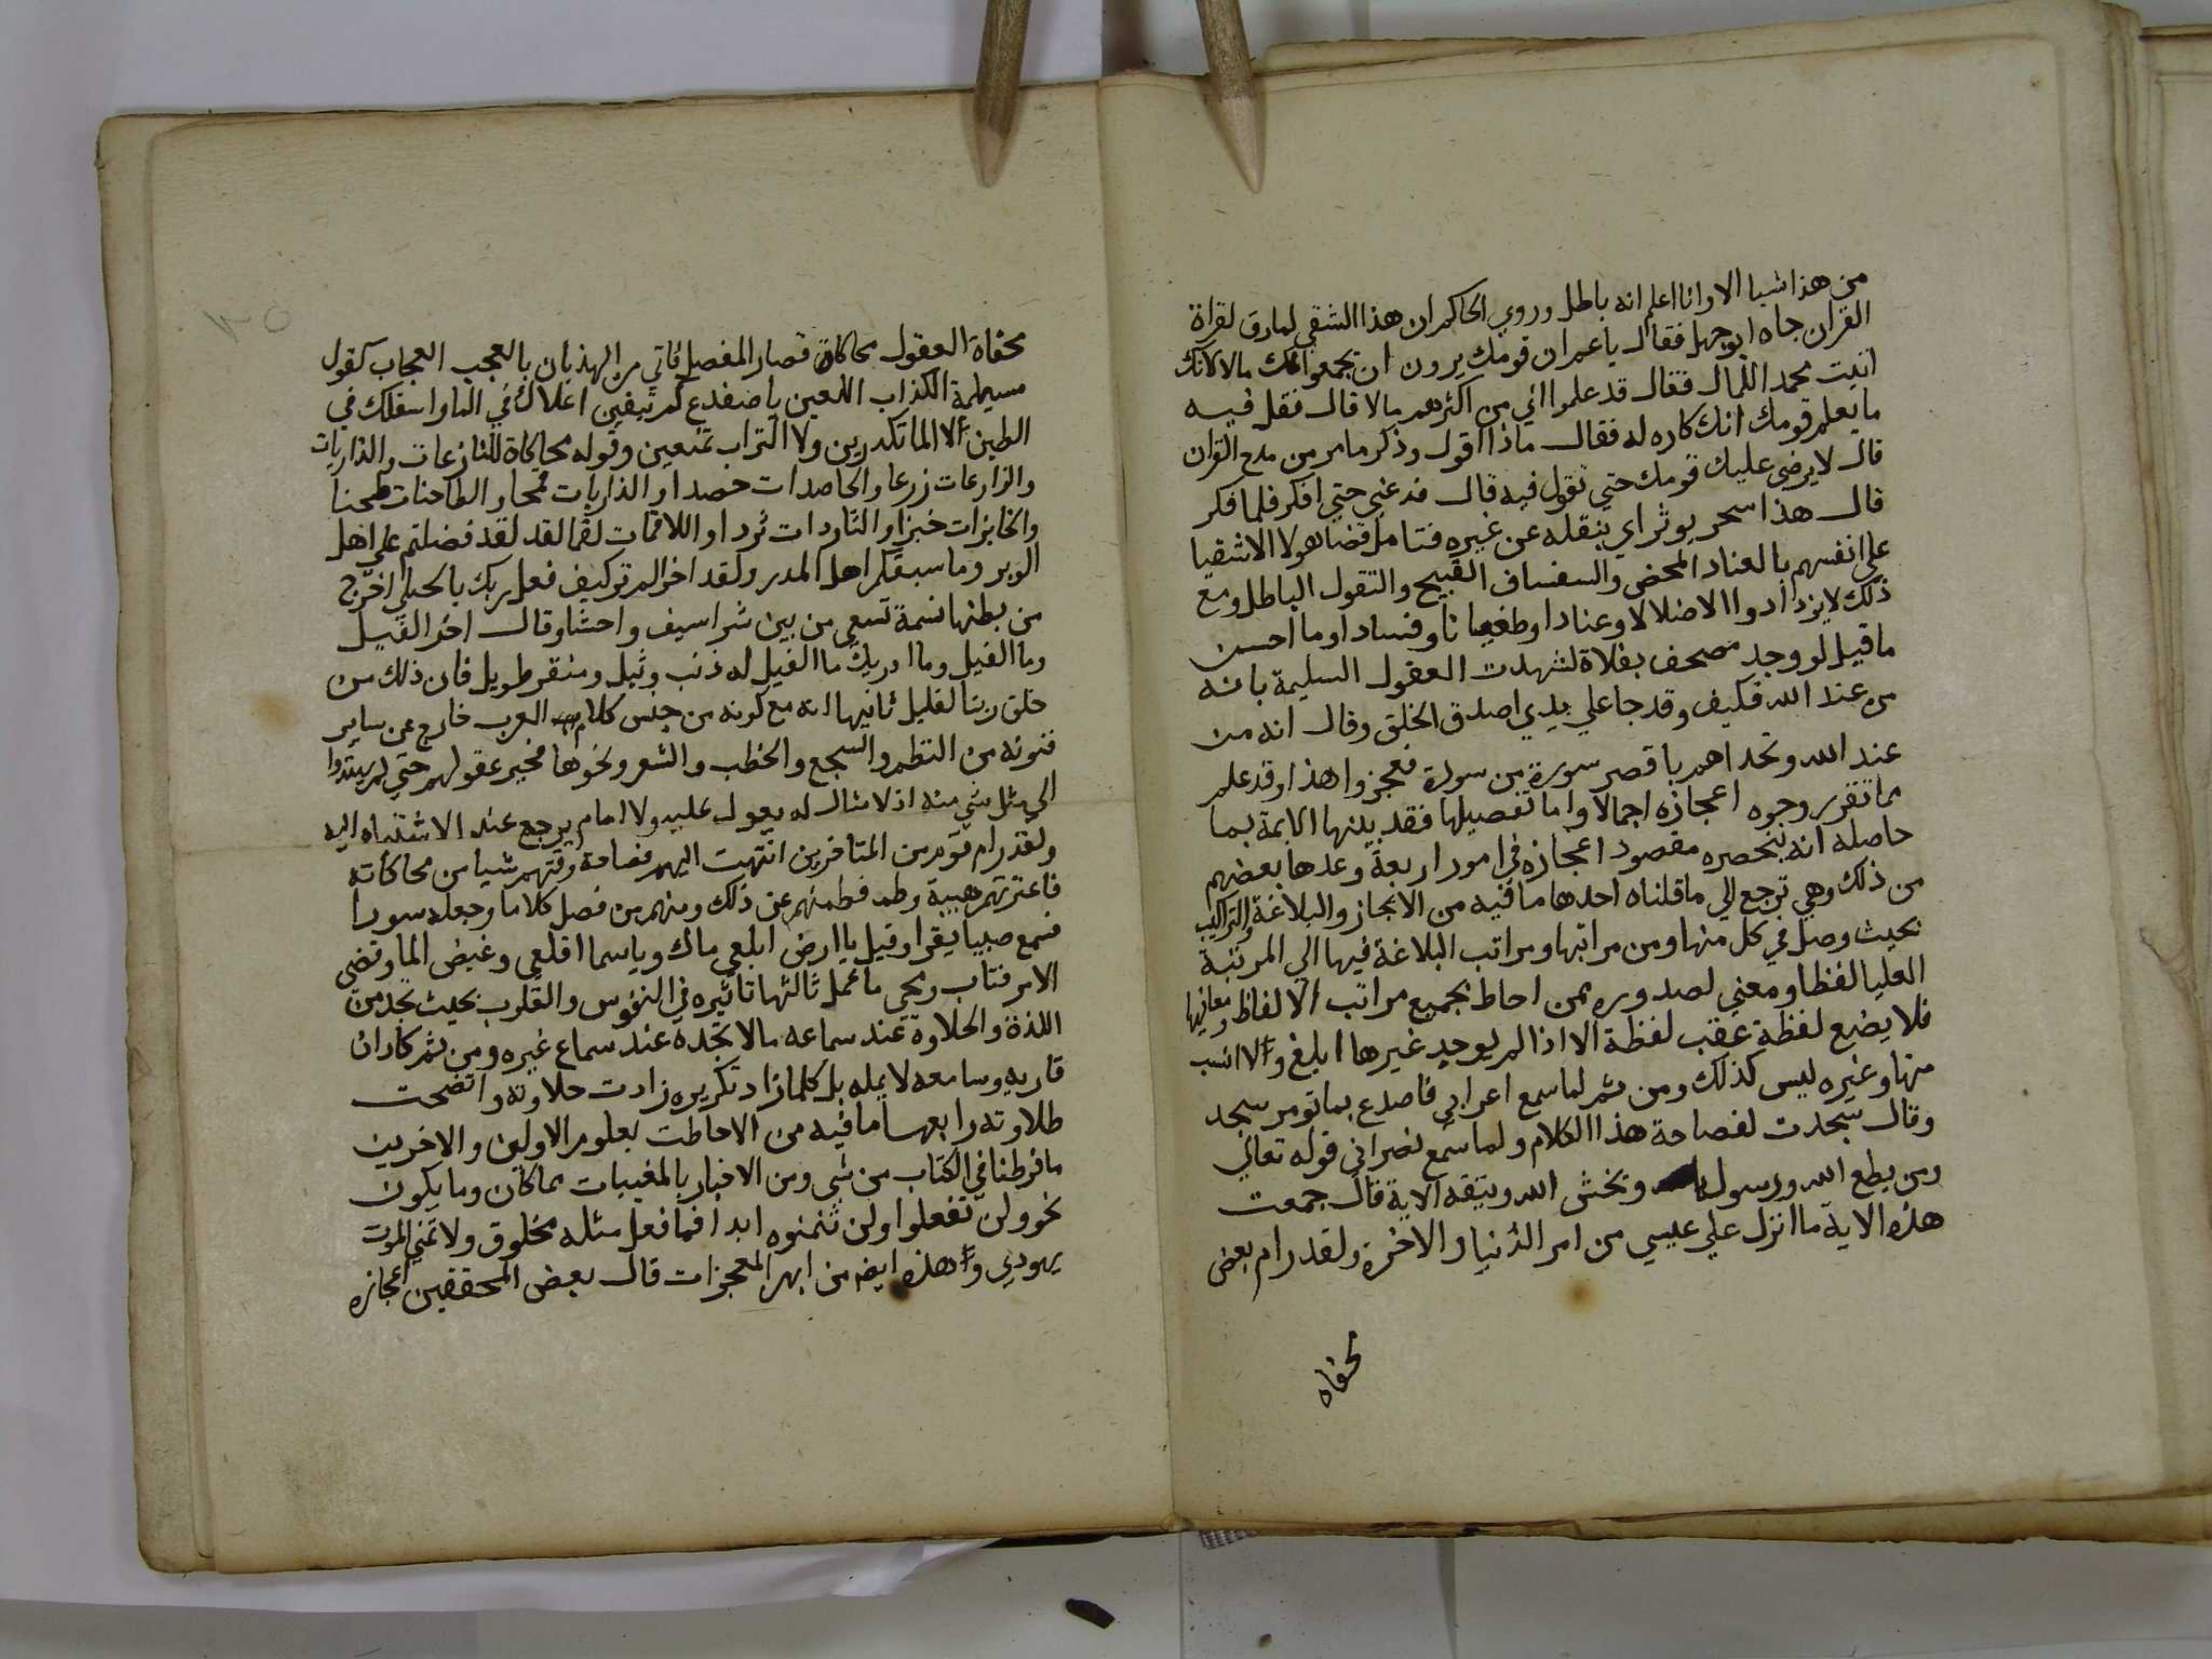 من هذا شيا الا وانا اعلم انه باطل وروي الحاكم ان هذا الشقي لما رق لقراة
القران جاه ابو جهل فقال يا عم ان قومك يرون ان يجمعوا لك مالا لانك
اتيت محمدا للمال فقال قد علموا اني من اكثرهم مالا قال فقل فيه
ما يعلم قومك انك كاره له فقال ماذا اقول وذكر ما مر من مدح القران
قال لا يرضى عليك قومك حتي تقول فيه قال فدعني حتي افكر فلما فكر
قال هذا سحر يوثر اي ينقله عن غيره فتامل قضا هولا الاشقيا
علي انفسهم بالعناد المحض والسفساف القبيح والتقول الباطل ومع
ذلك لا يزدادوا الا ضلالا وعنادا وطغيانا وفسادا وما احسن
ما قيل لو وجد مصحف بفلاة لشهدت العقول السليمة بانه
من عند الله فكيف وقد جا علي يدي اصدق الخلق وقال انه من
عند الله وتحداهم باقصر سورة من سورة فعجزوا هذا وقد علم
مما تقرر وجوه اعجازه اجمالا واما تفصيلها فقد بينها الايمة بما
حاصله انه ينحصره مقصود اعجازه في امور اربعة وعدها بعضهم
من ذلك وهي ترجع الي ما قلناه احدها ما فيه من الايجاز والبلاغة والتراكيب
بحيث وصل في كل منها ومن مراتبها ومراتب البلاغة فيها الي المرتبة
العليا لفظا ومعني لصدوره ممن احاط بجميع مراتب الالفاظ ومعانيها
فلا يضع لفظة عقب لفظة الا اذا لم يوجد غيرها ابلغ والا انسب
منها وغيره ليس كذلك ومن ثم لما سمع اعرابي فاصدع بما تومر سجد
وقال سجدت لفصاحة هذا الكلام ولما سمع نصراني قوله تعالي
ومن يطع الله ورسوله ويخش الله ويتقه الاية قال جمعت
هذه الاية ما انزل علي عيسي من امر الدنيا والاخرة ولقد رام بعض
سخفاه
سخفاة العقول محاكاة قصار المفصل فاتي من الهذيان بالعجب العجاب كقول
مسيلمة الكذاب اللعين يا ضفدع كم تنقين اعلاك في الما واسفلك في
الطين الا الما تكدرين ولا التراب تمنعين وقوله محاكاة للنازعات والذاريات
والزارعات زرعا والحاصدات حصدا والذاريات قمحا والطاحنات طحنا
والخابزات خبزا والثاردات ثردا واللاقمات لقما لقد لقد فضلتم علي اهل
الوبر وما سبقكم اهل المدر ولقد اخر الم تر كيف فعل ربك بالحبلي اخرج
من بطنها نسمة تسعي من بين شراسيف واحشا وقال اخر الفيل
وما الفيل وما ادريك ما الفيل له ذنب وثيل ومنقر طويل فان ذلك من
خلق ربنا لقليل ثانيها انه مع كونه من جنس كلام العرب خارج عن ساير
فنونه من النظم والسجع والخطب والشعر ونحوها فحير عقولهم حتي لم يهتدوا
الي مثل شي منه اذ لا مثال له يعول عليه ولا امام يرجع عند الاشتباه اليه
ولقد رام قوم من المتاخرين انتهت اليهم فصاحة وقتهم شيا من محاكاته
فاعترتهم هيبة وطم فطمتهم عن ذلك ومنهم من فصل كلاما وجعله سورا
فسمع صبيا يقرا وقيل يا ارض ابلعي ماك ويا سما اقلعي وغيض الما وقضي
الامر فتاب ومحي ما عمل ثالثها تاثيره في النفوس والقلوب بحيث تجد من
اللذة والحلاوة عند سماعه ما لا تجده عند سماع غيره ومن ثم كان
قاريه وسامعه لا يمله بل كلما زاد تكريره زادت حلاوته واتضحت
طلاوته رابعها ما فيه من الاحاطت بعلوم الاولين والاخرين
ما فرطنا في الكتاب من شي ومن الاخبار بالمغيبات مما كان وما يكون
نحو ولن تفعلوا ولن تتمنوه ابدا فما فعل مثله مخلوق ولا تمني الموت
يهودي وهذه ايضا من ابهر المعجزات قال بعض المحققين اعجازه